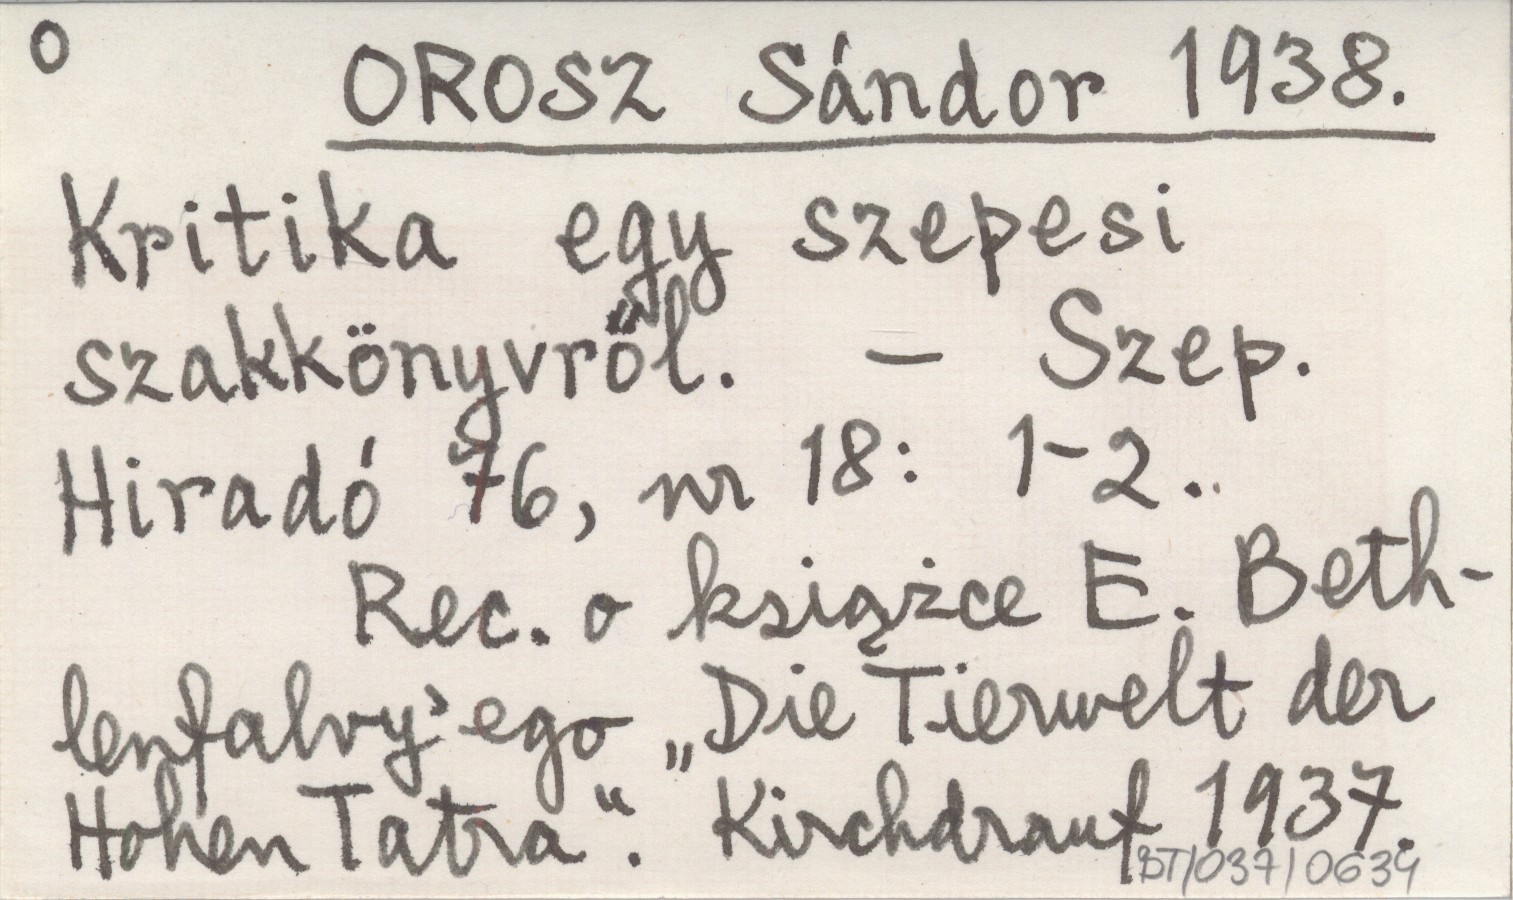 O
OROSZ Sándor 1938.
Kritika egy szepesi
szakkönyvről. – Szep.
Hiradó 76, nr 18: 1-2.
Rec. o książce E. Beth-
lenfalvy'ego „Die Tierwelt der
Hohen Tatra“. Kirchdrauf 1937.
BT/037/0634